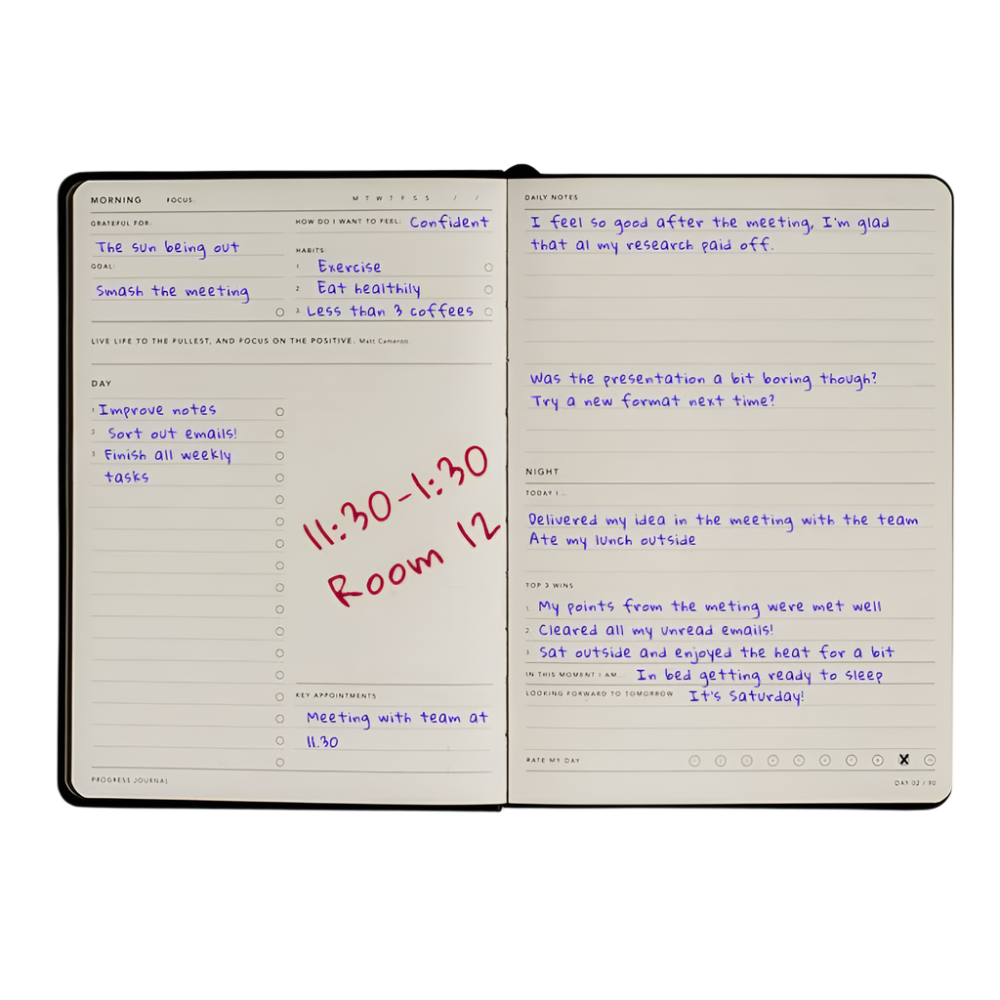 MORNING FOCUS: M T W T F S S / /
GRATEFUL FOR:
The sun being out
GOAL:
Smash the meeting
HOW DO I WANT TO FEEL: Confident
HABITS:
1 Exercise
2. Eat healthily
3 Less than 3 coffees
LIVE LIFE TO THE FULLEST, AND FOCUS ON THE POSITIVE. Matt Cameron
DAY
1 Improve notes
2 Sort out emails!
3 Finish all weekly
tasks
11:30-1:30
Room 12
KEY APPOINTMENTS
Meeting with team at
11.30
PROGRESS JOURNAL
DAILY NOTES
I feel so good after the meeting, I'm glad
that al my research paid off.
Was the presentation a bit boring though?
Try a new format next time?
NIGHT
TODAY I ...
Delivered my idea in the meeting with the team
Ate my lunch outside
TOP 3 WINS
1. My points from the meting were met well
2. Cleared all my unread emails!
3 Sat outside and enjoyed the heat for a bit
IN THIS MOMENT I AM... In bed getting ready to sleep
LOOKING FORWARD TO TOMORROW It's Saturday!
RATE MY DAY
DAY 02 / 90